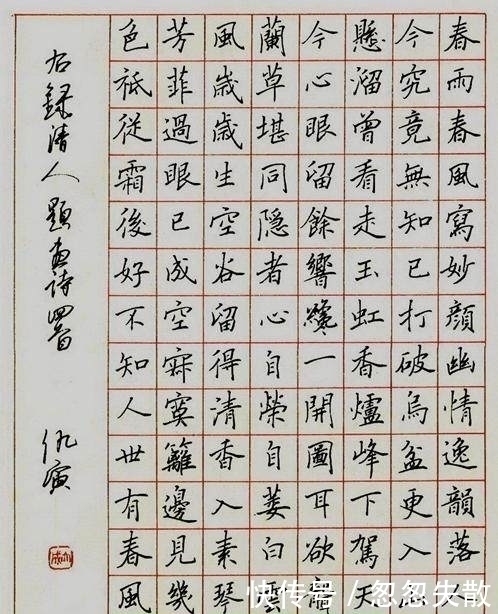 春雨春風寫妙顏幽情逸韻落
今究竟無知己打破烏盆更入
懸溜曾看走玉虹香爐峰下駕天
今心眼留餘響纔一開圖耳欲
蘭草堪同隱者心自榮自萎白雲
風歲歲生空谷留得清香入素琴
芳菲過眼已成空寂寞籬邊見幾
色祗從霜後好不知人世有春風
右錄清人題畫詩四首
仇寅
快传号/忽忽失散